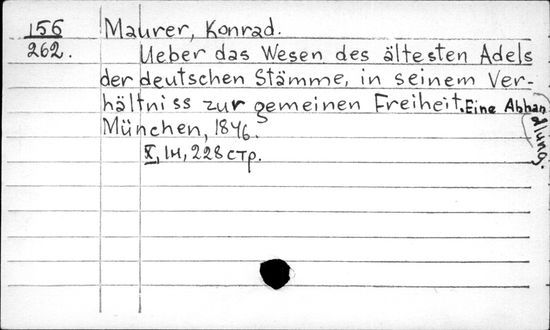 156 Maurer, Konrad.
262. Ueber das Wesen des ältesten Adels
der deutschen Stämme, in seinem Ver-
hältniss zur gemeinen Freiheit. Eine Abhan
dlung.
München, 1846.
X, 1н, 228 стр.